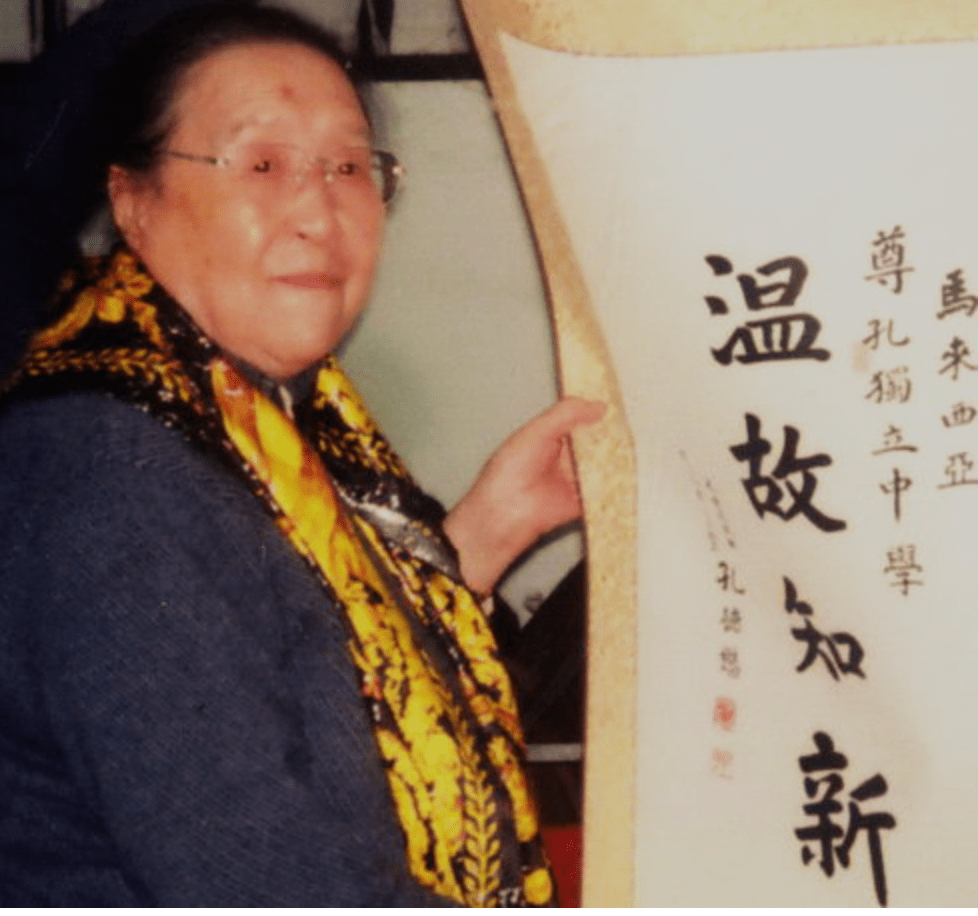 馬來西亞
尊孔獨立中學
温故知新
孔德懋